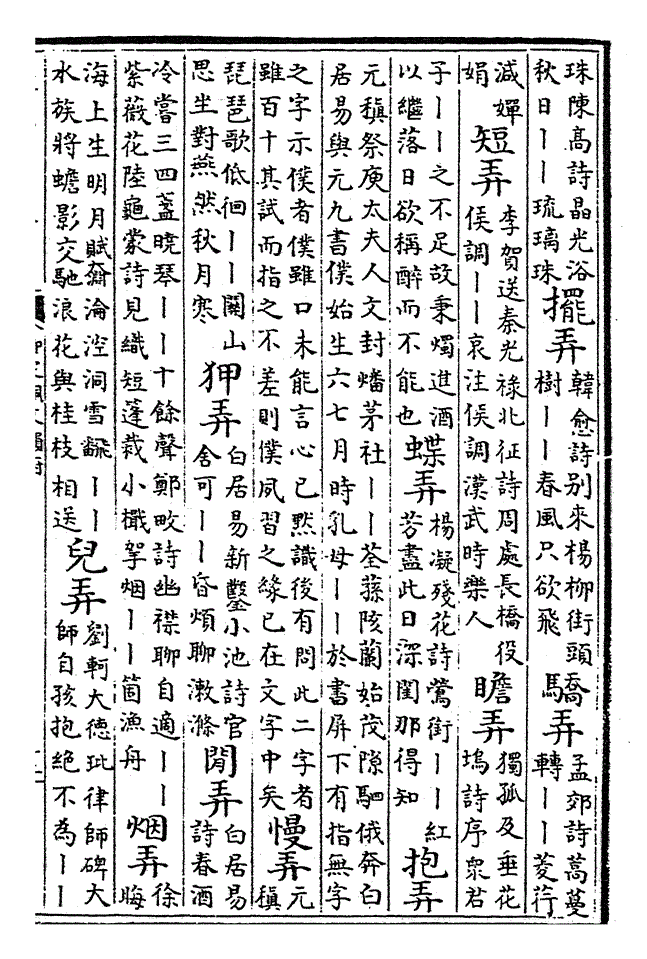 珠陳高詩晶光浴秋日〡〡琉璃珠 擺弄 韓愈詩别來楊柳街頭樹〡〡春風只欲飛 驕弄 孟郊詩蒿蔓轉〡〡菱荇
減嬋娟 短弄 李賀送秦光祿北征詩周處長橋役侯調〡〡哀注侯調漢武時樂人 瞻弄 獨孤及垂花塢詩序衆君
子〡〡之不足故秉燭進酒以繼落日欲稱醉而不能也 蝶弄 楊凝殘花詩鶯銜〡〡紅芳盡此日深閨那得知 抱弄
元稹祭庾太夫人文封燔茅社〡〡荃蓀陔蘭始茂隙駟俄奔白居易與元九書僕始生六七月時乳母〡〡於書屏下有指無字
之字示僕者僕雖口未能言心已默識後有問此二字者雖百十其試而指之不差則僕夙習之緣已在文字中矣 慢弄 元稹
琵琶歌低徊〡〡關山思坐對燕然秋月寒 狎弄 白居易新鑿小池詩官舍可〡〡昏煩聊漱滌 閒弄 白居易詩春酒
冷嘗三四盞曉琴〡〡十餘聲鄭畋詩幽襟聊自適〡〡紫薇花陸龜蒙詩見織短蓬裁小檝拏烟〡〡箇漁舟 烟弄 徐晦
海上生明月賦齋淪涳洞雪翻〡〡水族將蟾影交馳浪花與桂枝相送 兒弄 劉軻大德玭律師碑大師自孩抱絕不為〡〡